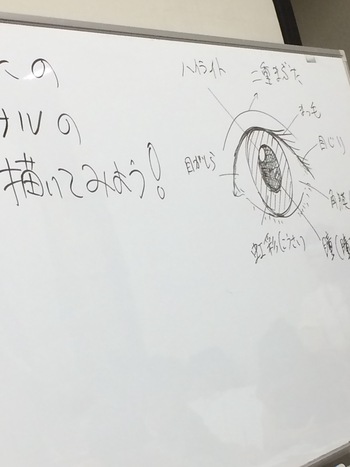 たの
ナルの
描いてみよう!
ハイライト
二重まぶた
まつ毛
目じり
目がしら
角膜
虹彩(こうさい)
瞳(瞳